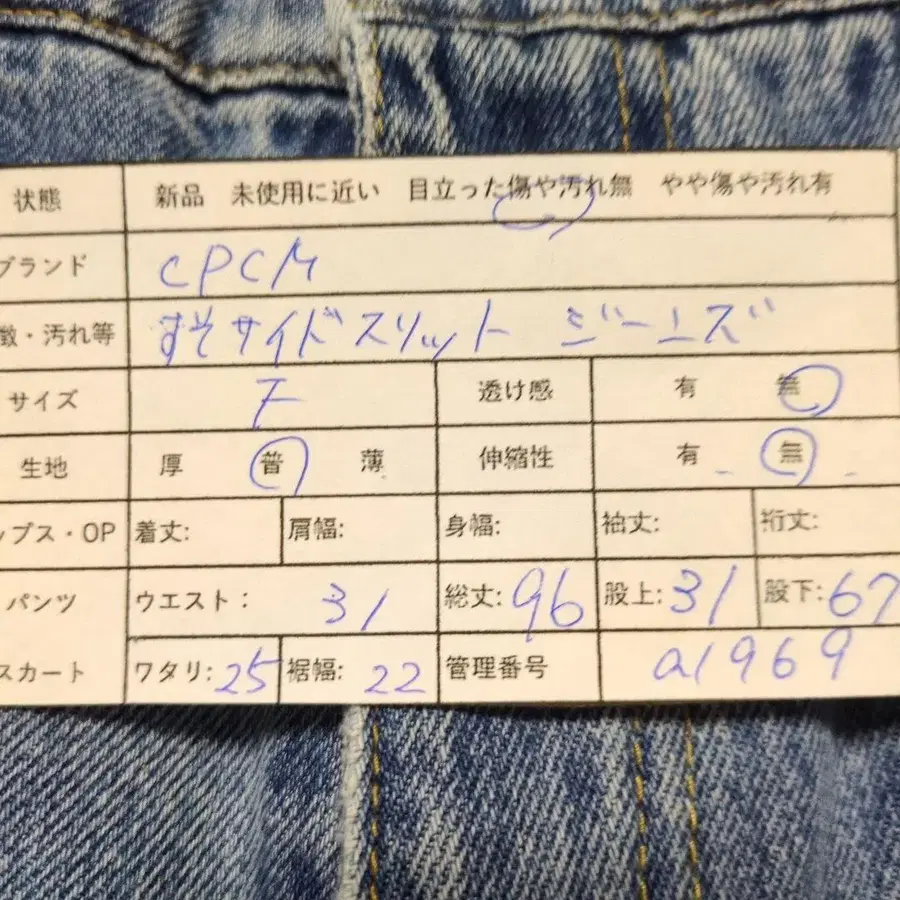 状態 新品 未使用に近い 目立った傷や汚れ無 やや傷や汚れ有
ブランド CPCM
徴・汚れ等 すそサイドスリット ジーンズ
サイズ F 透け感 有 無
生地 厚 普 薄 伸縮性 有 無
ップス・OP 着丈: 肩幅: 身幅: 袖丈: 裄丈:
パンツ ウエスト: 31 総丈: 96 股上: 31 股下: 67
スカート ワタリ: 25 裾幅: 22 管理番号 a1969